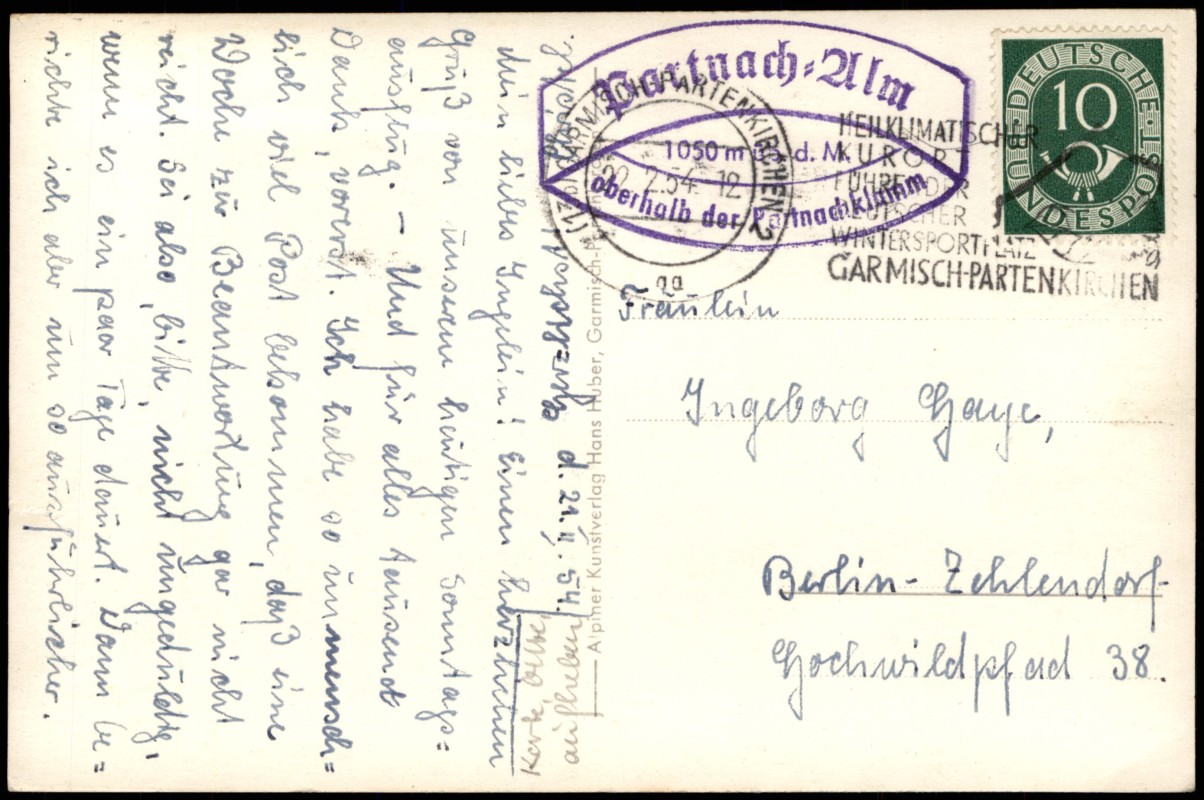 Partnach-Alm
1050 m ü. d. M.
oberhalb der Partnachklamm
GARMISCH-PARTENKIRCHEN 2
22. 2. 54. 12
HEILKLIMATISCHER
KURORT
FÜHRENDER
DEUTSCHER
WINTERSPORTPLATZ
GARMISCH-PARTENKIRCHEN
DEUTSCHE BUNDESPOST
10
Fräulein
Ingeborg Gaye,
Berlin-Zehlendorf
Hochwildpfad 38.
Alpiner Kunstverlag Hans Huber, Garmisch-
d. 21. II. 54
Mein liebes Ingelein! Einen herzlichen
Gruß von unserem heutigen Sonntags=
ausflug. – Und für alles tausend
Dank, vorerst. Ich habe so unmensch=
lich viel Post bekommen, daß eine
Woche zur Beantwortung gar nicht
reicht. Sei also, bitte, nicht ungeduldig,
wenn es ein paar Tage dauert. Dann be=
richte ich aber um so ausführlicher.
Karte, bitte,
aufheben!